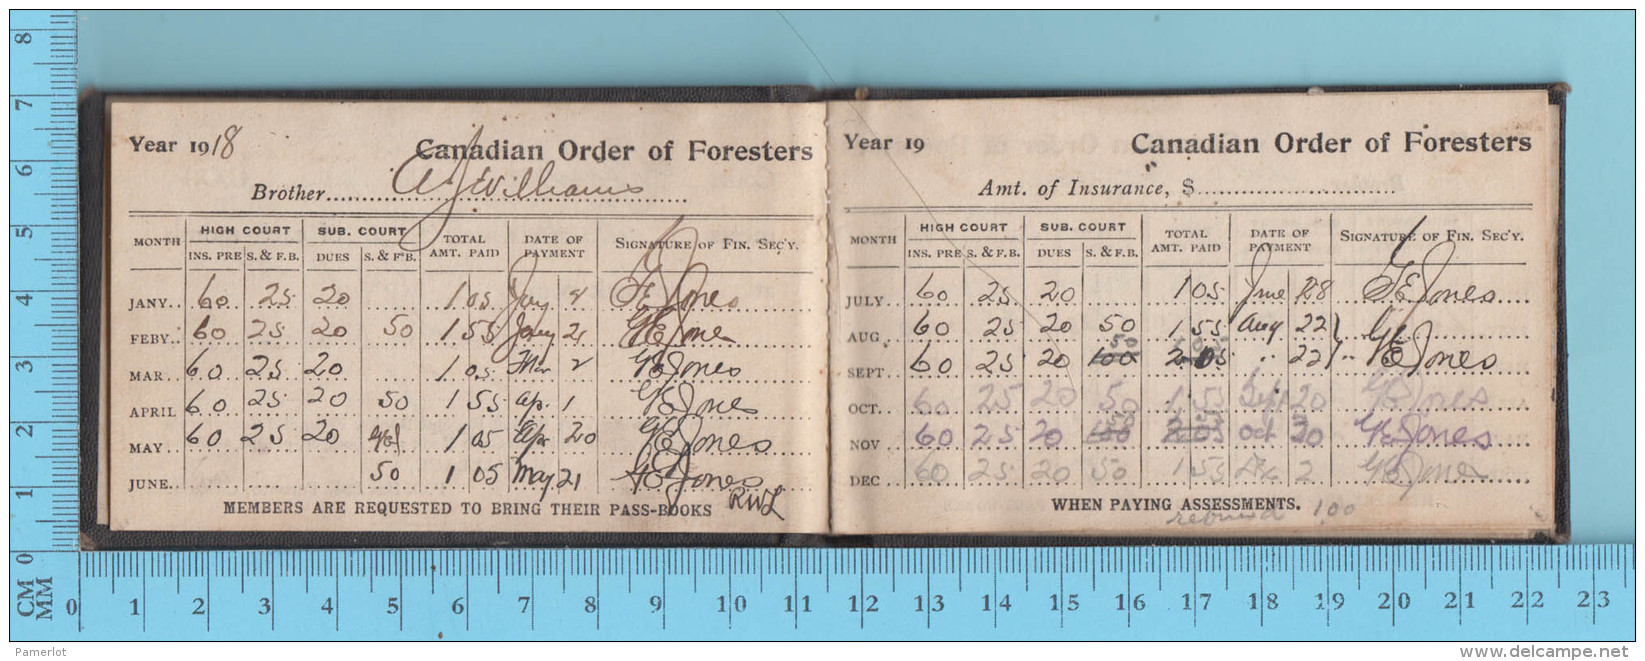 Year 1918 Canadian Order of Foresters
Brother A J Williams
MONTH HIGH COURT SUB. COURT TOTAL AMT. PAID DATE OF PAYMENT SIGNATURE OF FIN. SEC'Y.
INS. PRE S. & F.B. DUES S. & F.B.
JANY.. 60 25 20 1 05 Jany 4 G E Jones
FEBY.. 60 25 20 50 1 55 Jany 21 G E Jones
MAR... 60 25 20 1 05 Mar 2 G E Jones
APRIL 60 25 20 50 1 55 Ap. 1 G E Jones
MAY... 60 25 20 1 05 Apr 20 G E Jones
JUNE.. 50 1 05 May 21 G E Jones
MEMBERS ARE REQUESTED TO BRING THEIR PASS-BOOKS
Year 19 Canadian Order of Foresters
Amt. of Insurance, $
MONTH HIGH COURT SUB. COURT TOTAL AMT. PAID DATE OF PAYMENT SIGNATURE OF FIN. SEC'Y.
INS. PRE S. & F.B. DUES S. & F.B.
JULY.. 60 25 20 1 05 June 28 G E Jones
AUG. 60 25 20 50 1 55 Aug 22 G E Jones
50
SEPT.. 60 25 20 100 2 05 " 22 " G E Jones
OCT... 60 25 20 50 1 55 Sept 20 G E Jones
50
NOV 60 25 20 100 2 05 Oct 30 G E Jones
DEC 60 25 20 50 1 55 Dec 2 G E Jones
WHEN PAYING ASSESSMENTS.
1 00
8
7
6
5
4
3
2
1
CM 0
MM 0 1 2 3 4 5 6 7 8 9 10 11 12 13 14 15 16 17 18 19 20 21 22 23
Pamerlot
delcampe.com